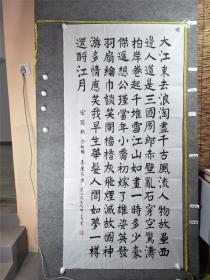 大江東去浪淘盡千古風流人物故壘西
邊人道是三國周郎赤壁亂石穿空驚濤
拍岸卷起千堆雪江山如畫一時多少豪
傑遥想公瑾當年小喬初嫁了雄姿英發
羽扇綸巾談笑間檣櫓灰飛煙滅故國神
游多情應笑我早生華髮人間如夢一樽
還酹江月
宋蘇軾念奴嬌赤壁懷古